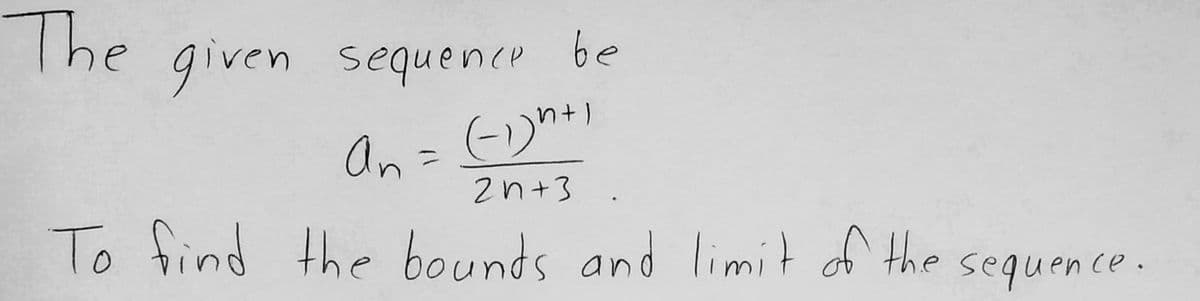 The given sequence be
an = (-1)^n+1 / 2n+3 .
To find the bounds and limit of the sequence.